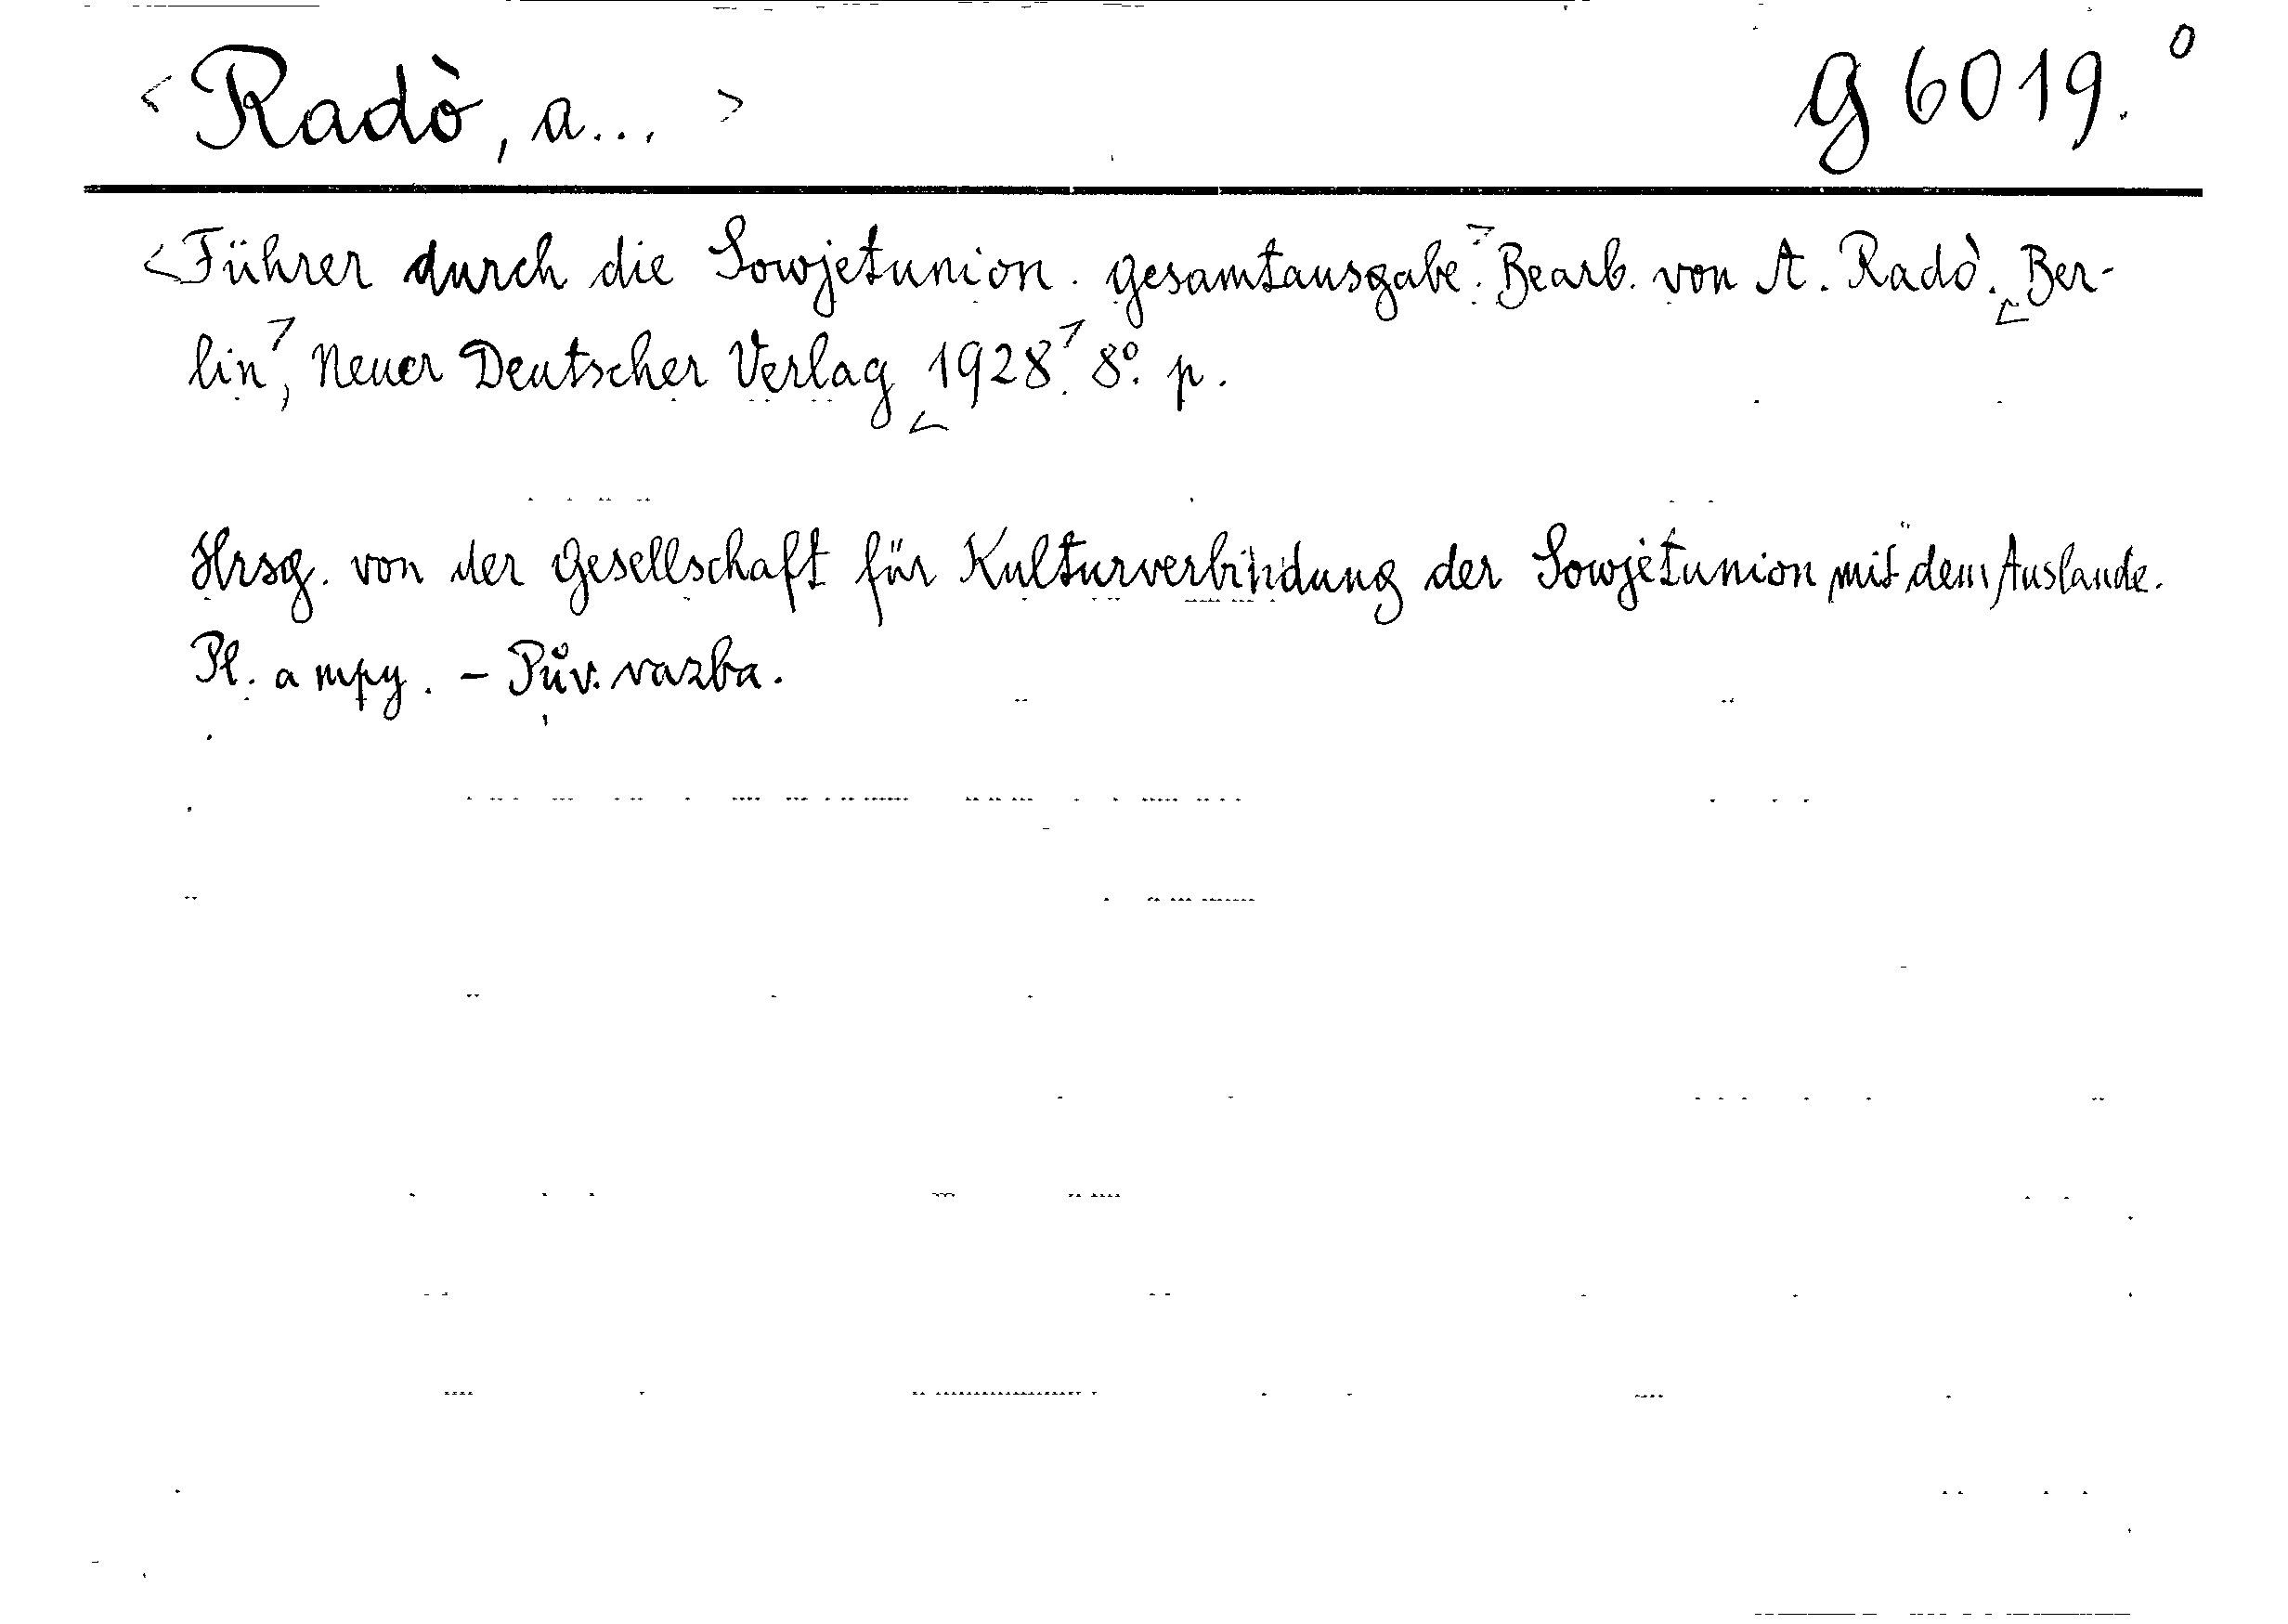 <Radò, a...> G 6019.⁰
<Führer durch die Sowjetunion. Gesamtausgabe.> Bearb. von A. Radò. <Ber-
lin>, Neuer Deutscher Verlag <1928>. 8⁰. p.
Hrsg. von der Gesellschaft für Kulturverbindung der Sowjetunion mit dem Auslande.
Pl. a mpy. – Pův. vazba.